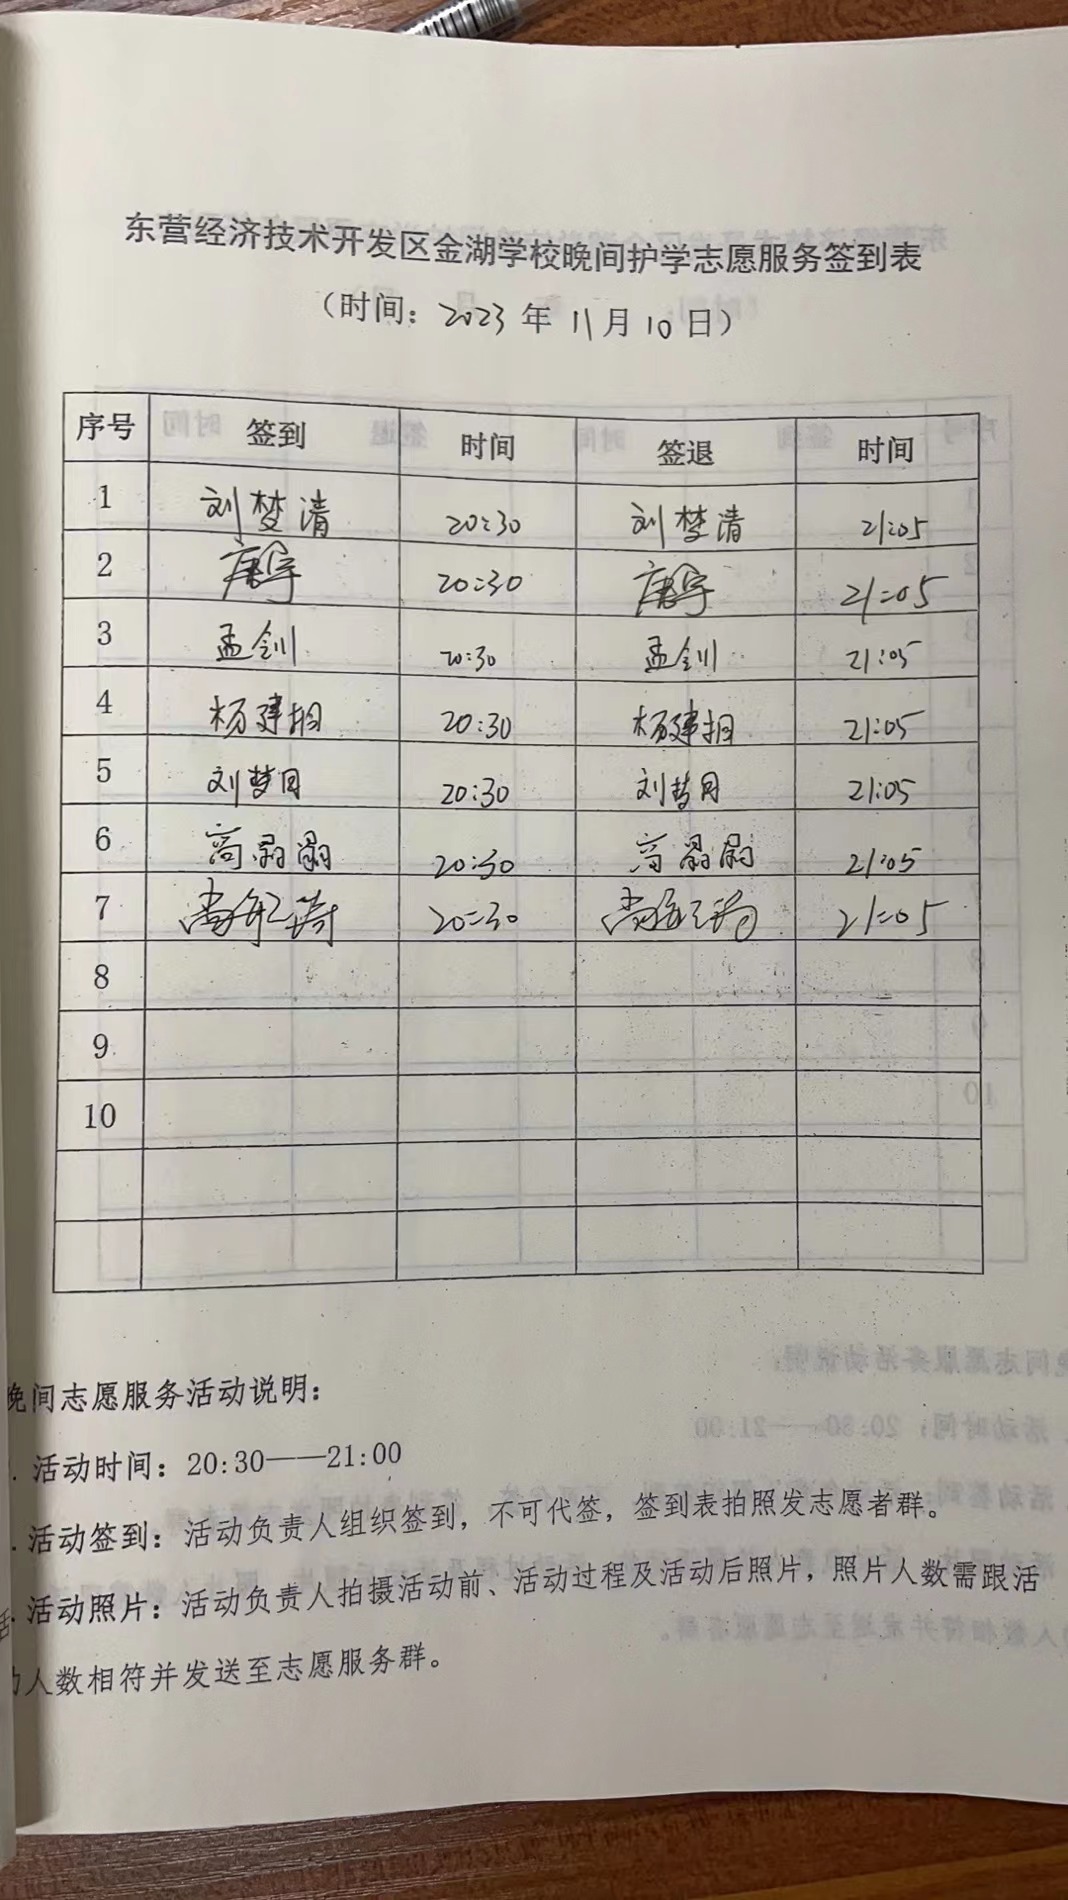 东营经济技术开发区金湖学校晚间护学志愿服务签到表
（时间：2023年11月10日）
序号 签到 时间 签退 时间
1 刘梦清 20:30 刘梦清 21:05
2 唐宇 20:30 唐宇 21:05
3 孟剑 20:30 孟剑 21:05
4 杨建 20:30 杨建 21:05
5 刘梦月 20:30 刘梦月 21:05
6 高晶晶 20:30 高晶晶 21:05
7 20:30 21:05
8
9
10
晚间志愿服务活动说明：
. 活动时间：20:30——21:00
. 活动签到：活动负责人组织签到，不可代签，签到表拍照发志愿者群。
. 活动照片：活动负责人拍摄活动前、活动过程及活动后照片，照片人数需跟活
动人数相符并发送至志愿服务群。